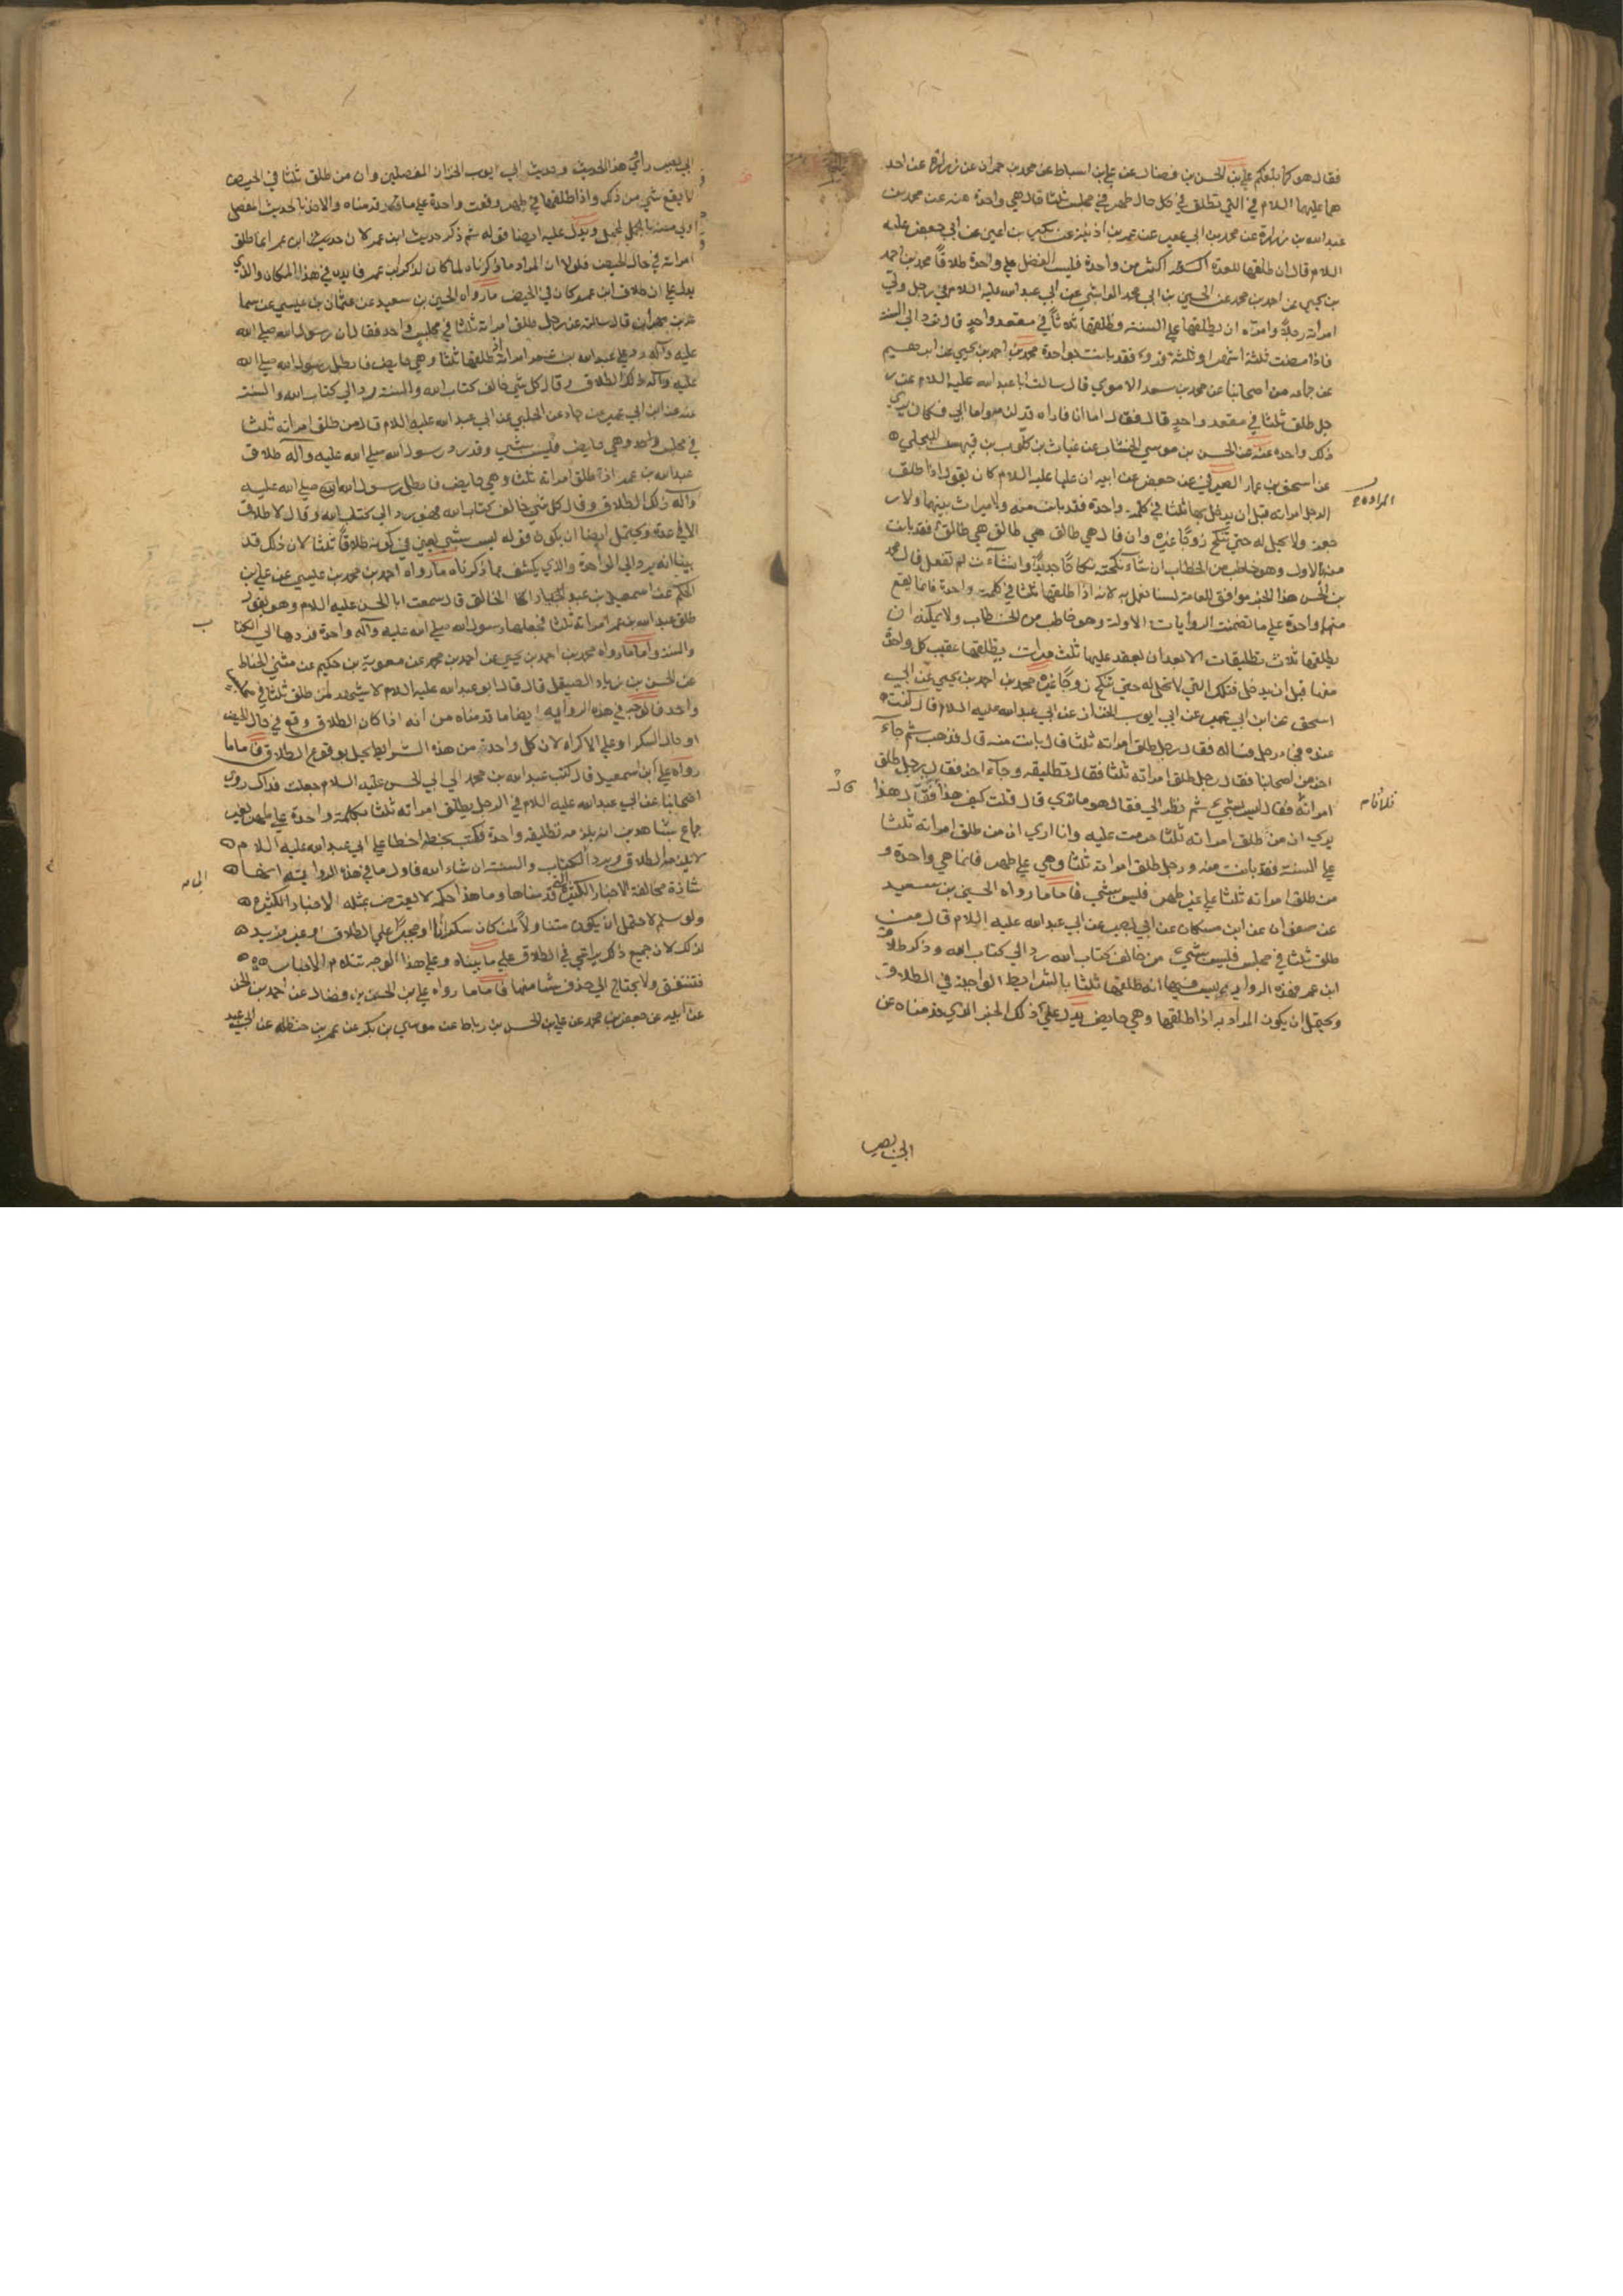 فقال هو كما بلغكم علي بن الحسن بن فضال عن علي بن اسباط عن محمد بن حمران عن زرارة عن احد
هما عليهما السلام في التي تطلق في كل حال طهر في مجلس ثلثا قال هي واحدة عنه عن محمد بن
عبد الله بن زرارة عن محمد بن ابي عمير عن عمر بن اذينة عن بكير بن اعين عن ابي جعفر عليه
السلام قال ان طلقها للعدة اكثر من واحدة فليس الفضل علي واحدة طلاقا محمد بن احمد
بن يحيي عن احمد بن محمد عن الحسين عن ابي محمد الوابشي عن ابي عبد الله عليه السلام في رجل ولي
امراته رجلا وامره ان يطلقها علي السنة فطلقها ثلاثا في مقعد واحد قال ترد الي السنة
فاذا مضت ثلثة اشهر او ثلثة قروء فقد بانت بواحدة محمد بن احمد بن يحيي عن ابرهيم
عن جماعة من اصحابنا عن محمد بن سعد الاموي قال سالت ابا عبد الله عليه السلام عن ر
جل طلق ثلثا في مقعد واحد قال فقال اما انا فاراه قد لزمه واما ابي فكان يري
ذلك واحدة عنه عن الحسن بن موسي الخشاب عن غياث بن كلوب بن فيهس البجلي
عن اسحق بن عمار الصيرفي عن جعفر عن ابيه ان عليا عليه السلام كان يقول اذا طلق
الرجل امراته قبل ان يدخل بها ثلثا في كلمة واحدة فقد بانت منه ولا ميراث بينهما ولا ر
جعة ولا يحل له حتي تنكح زوجا غيره وان قال هي طالق هي طالق هي طالق فقد بانت
منه بالاول وهو خاطب من الخطاب ان شاءت نكحته نكاحا جديدا وان شاءت لم تفعل قال محمد
بن الحسن هذا الخبر موافق للعامة لسنا نعمل به لانه اذا طلقها ثلثا في كلمة واحدة فانما يقع
منها واحدة علي ما تضمنت الروايات الاولة وهو خاطب من الخطاب ولا يمكنه ان
يطلقها ثلاث تطليقات الا بعد ان يعقد عليها ثلث مرات يطلقها عقيب كل واحدة
منها قبل ان يدخل فتلك التي لا تحل له حتي تنكح زوجا غيره محمد بن احمد بن يحيي عن ابي
اسحق عن ابن ابي عمير عن ابي ايوب الخزاز عن ابي عبد الله عليه السلام قال كنت
عنده فجاء رجل فساله فقال رجل طلق امراته ثلثا قال بانت منه قال فذهب ثم جاء
اخر من اصحابنا فقال رجل طلق امراته ثلثا فقال تطليقة وجاء اخر فقال رجل طلق
امراته فقال ليس بشيء ثم نظر الي فقال هو ما تري قال قلت كيف هذا فقال هذا
يري ان من طلق امراته ثلثا حرمت عليه وانا اري ان من طلق امراته ثلثا
علي السنة فقد بانت منه ورجل طلق امراته ثلثا وهي علي طهر فانما هي واحدة و
من طلق امراته ثلثا علي غير طهر فليس بشي فاما ما رواه الحسين بن سعيد
عن صفوان عن ابن مسكان عن ابي بصير عن ابي عبد الله عليه السلام قال من
طلق ثلثا في مجلس فليس بشيء من خالف كتاب الله رد الي كتاب الله وذكر طلاق
ابن عمر فهذه الرواية ليس فيها انه طلقها ثلثا بالشرايط الواجبة في الطلاق
ويحتمل ان يكون المراد به اذا طلقها وهي حايض يدل علي ذلك الخبر الذي قدمناه عن
ابي بصير
ابي بصير راوي هذا الحديث وحديث ابي ايوب الخزاز المفصلين وان من طلق ثلثا في الحيض
لا يقع شي من ذلك واذا طلقها في طهر وقعت واحدة علي ما قدمناه والاخذ بالحديث المفصل
اولي منه بالمجمل ويدل عليه ايضا قوله ثم ذكر حديث ابن عمر لان حديث ابن عمر انما طلق
امراته في حال الحيض فلولا ان المراد ما ذكرناه لما كان لذكر ابن عمر فايدة في هذا المكان والذي
يدل علي ان طلاق ابن عمر كان في الحيض ما رواه الحسين بن سعيد عن عثمان بن عيسي عن سما
عة بن مهران قال سالته عن رجل طلق امراته ثلثا في مجلس واحد فقال ان رسول الله صلي الله
عليه وآله رد علي عبد الله بن عمر امراته طلقها ثلثا وهي حايض فابطل رسول الله صلي الله
عليه وآله ذلك الطلاق وقال كل شي خالف كتاب الله والسنة رد الي كتاب الله والسنة
عنه عن ابن ابي عمير عن حماد عن الحلبي عن ابي عبد الله عليه السلام قال من طلق امراته ثلثا
في مجلس واحد وهي حايض فليس بشي وقد رد رسول الله صلي الله عليه وآله طلاق
عبد الله بن عمر اذ طلق امراته ثلثا وهي حايض فابطل رسول الله صلي الله عليه
وآله ذلك الطلاق وقال كل شي خالف كتاب الله فهو رد الي كتاب الله وقال لا طلاق
الا في عدة ويحتمل ايضا ان يكون قوله ليس بشي يعني في كونه طلاقا ثلثا لان ذلك قد
بينا انه يرد الي الواحدة والذي يكشف عما ذكرناه ما رواه احمد بن محمد بن عيسي عن علي بن
الحكم عن اسمعيل بن عبد الخالق قال سمعت ابا الحسن عليه السلام وهو يقول
طلق عبد الله بن عمر امراته ثلثا فجعلها رسول الله صلي الله عليه وآله واحدة فردها الي الكتاب
والسنة واما ما رواه محمد بن احمد بن يحيي عن احمد بن محمد عن معوية بن حكيم عن مثني الحناط
عن الحسن بن زياد الصيقل قال قال ابو عبد الله عليه السلام لا تشهد لمن طلق ثلثا في مجلس
واحد فالوجه في هذه الرواية ايضا ما قدمناه من انه اذا كان الطلاق وقع في حال الحيض
او حال السكر او علي الاكراه لان كل واحدة من هذه الشرايط يخل بوقوع الطلاق فاما ما
رواه علي بن اسمعيل قال كتب عبد الله بن محمد الي ابي الحسن عليه السلام جعلت فداك روي
اصحابنا عن ابي عبد الله عليه السلام في الرجل يطلق امراته ثلثا بكلمة واحدة علي طهر بغير
جماع بشاهدين انه يلزمه تطليقة واحدة فكتب بخطه اخطا علي ابي عبد الله عليه السلام
لا يلزمه الطلاق ويرد الي الكتاب والسنة ان شاء الله فاول ما في هذه الرواية انها
شاذة مخالفة للاخبار الكثيرة التي قدمناها وما هذا حكمه لا يعترض بمثله الاخبار الكثيرة
ولو سلم لاحتمل ان يكون متناولا لمن كان سكرانا او مجبرا علي الطلاق او غير مريد
لذلك لان جميع ذلك يراعي في الطلاق علي ما بيناه وعلي هذا الوجه تتلاءم الاخبار
وتتفق ولا يحتاج الي حذف شيء منها فاما ما رواه علي بن الحسن بن فضال عن احمد بن الحسن
عن ابيه عن جعفر بن محمد عن علي بن الحسن بن رباط عن موسي بن بكر عن عمر بن حنظلة عن ابي عبد